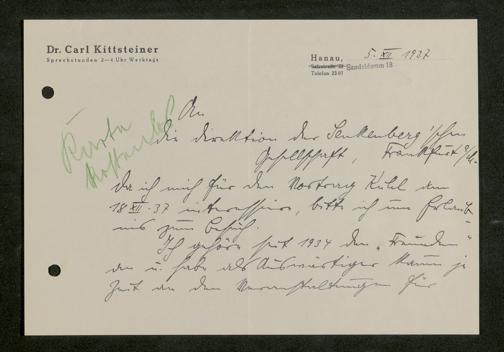 Dr. Carl Kittsteiner
Sprechstunden 2–4 Uhr Werktags
Hanau, 5. XII 1937
Sandeldamm 18
Telefon
Karte
An
die Direktion der Senkenberg'schen
Gesellschaft, Frankfurt a/M.
Da ich mich für den Vortrag Kühl am
18 XII. 37 interessiere, bitte ich um Erlaub-
nis zum Besuch.
Ich gehöre seit 1934 den „Freunden"
an u. habe als Auswärtiger kaum je
Zeit an den Veranstaltungen für